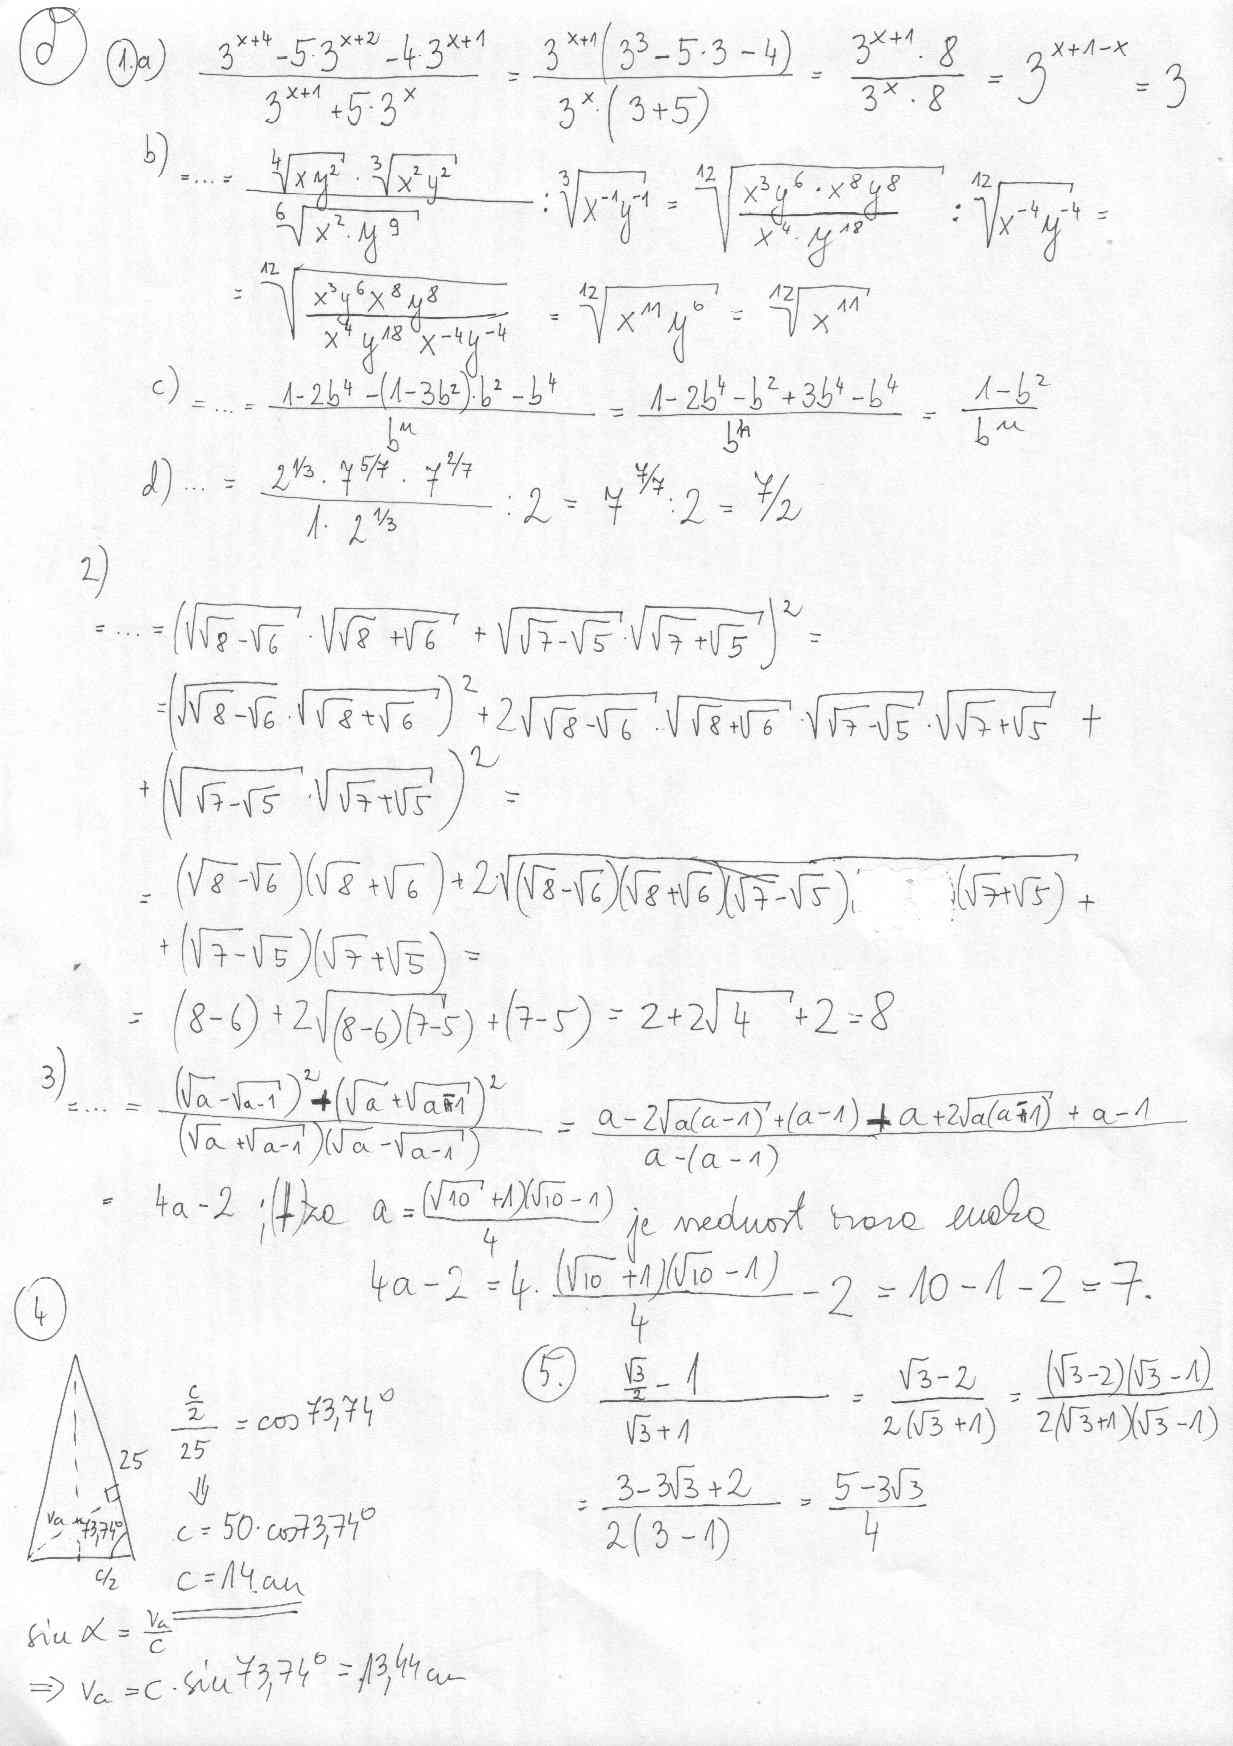 d 1.a) (3^{x+4} - 5·3^{x+2} - 4·3^{x+1}) / (3^{x+1} + 5·3^x) = 3^{x+1}(3^3 - 5·3 - 4) / 3^x·(3+5) = 3^{x+1}·8 / 3^x·8 = 3^{x+1-x} = 3
b) =...= (∜(xy²) · ∛(x²y²)) / ⁶√(x²·y⁹) : ∛(x⁻¹y⁻¹) = ¹²√(x³y⁶·x⁸y⁸ / x⁴·y¹⁸) : ¹²√(x⁻⁴y⁻⁴) =
= ¹²√(x³y⁶x⁸y⁸ / x⁴y¹⁸x⁻⁴y⁻⁴) = ¹²√(x¹¹y⁰) = ¹²√(x¹¹)
c) =...= (1-2b⁴-(1-3b²)·b²-b⁴) / bⁿ = (1-2b⁴-b²+3b⁴-b⁴) / bⁿ = (1-b²) / bⁿ
d) ... = (2^{1/3}·7^{5/7}·7^{2/7}) / (1·2^{1/3}) : 2 = 7^{7/7} : 2 = 7/2
2)
=...= (√(√8-√6)·√(√8+√6) + √(√7-√5)·√(√7+√5))² =
= (√(√8-√6)·√(√8+√6))² + 2√(√8-√6)·√(√8+√6)·√(√7-√5)·√(√7+√5) +
+ (√(√7-√5)·√(√7+√5))² =
= (√8-√6)(√8+√6) + 2·√((√8-√6)(√8+√6)(√7-√5)(√7+√5)) +
+ (√7-√5)(√7+√5) =
= (8-6) + 2√((8-6)(7-5)) + (7-5) = 2+2√4 +2 = 8
3) =...= ((√a-√(a-1))² + (√a+√(a-1))²) / ((√a+√(a-1))(√a-√(a-1))) = (a-2√(a(a-1))+(a-1) + a+2√(a(a-1))+a-1) / (a-(a-1))
= 4a-2 ; za a = (√10+1)(√10-1) / 4 je vrednost izraza enaka
4a-2 = 4·(√10+1)(√10-1) / 4 - 2 = 10-1-2 = 7.
4
25
va 73,74°
c/2
(c/2) / 25 = cos73,74°
⇓
c = 50·cos73,74°
c = 14 cm
sin α = va / c
⇒ va = c·sin73,74° = 13,44 cm
5. (√3/2 - 1) / (√3+1) = (√3-2) / 2(√3+1) = (√3-2)(√3-1) / 2(√3+1)(√3-1)
= (3-3√3+2) / 2(3-1) = (5-3√3) / 4